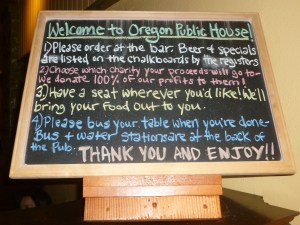 Welcome to Oregon Public House!
1) Please order at the bar. Beer & specials
are listed on the chalkboards by the registers
2) Choose which charity your proceeds will go to-
we donate 100% of our profits to them!
3) Have a seat wherever you'd like! We'll
bring your food out to you.
4) Please bus your table when you're done-
Bus + water stations are at the back of
the Pub.
THANK YOU AND ENJOY!!